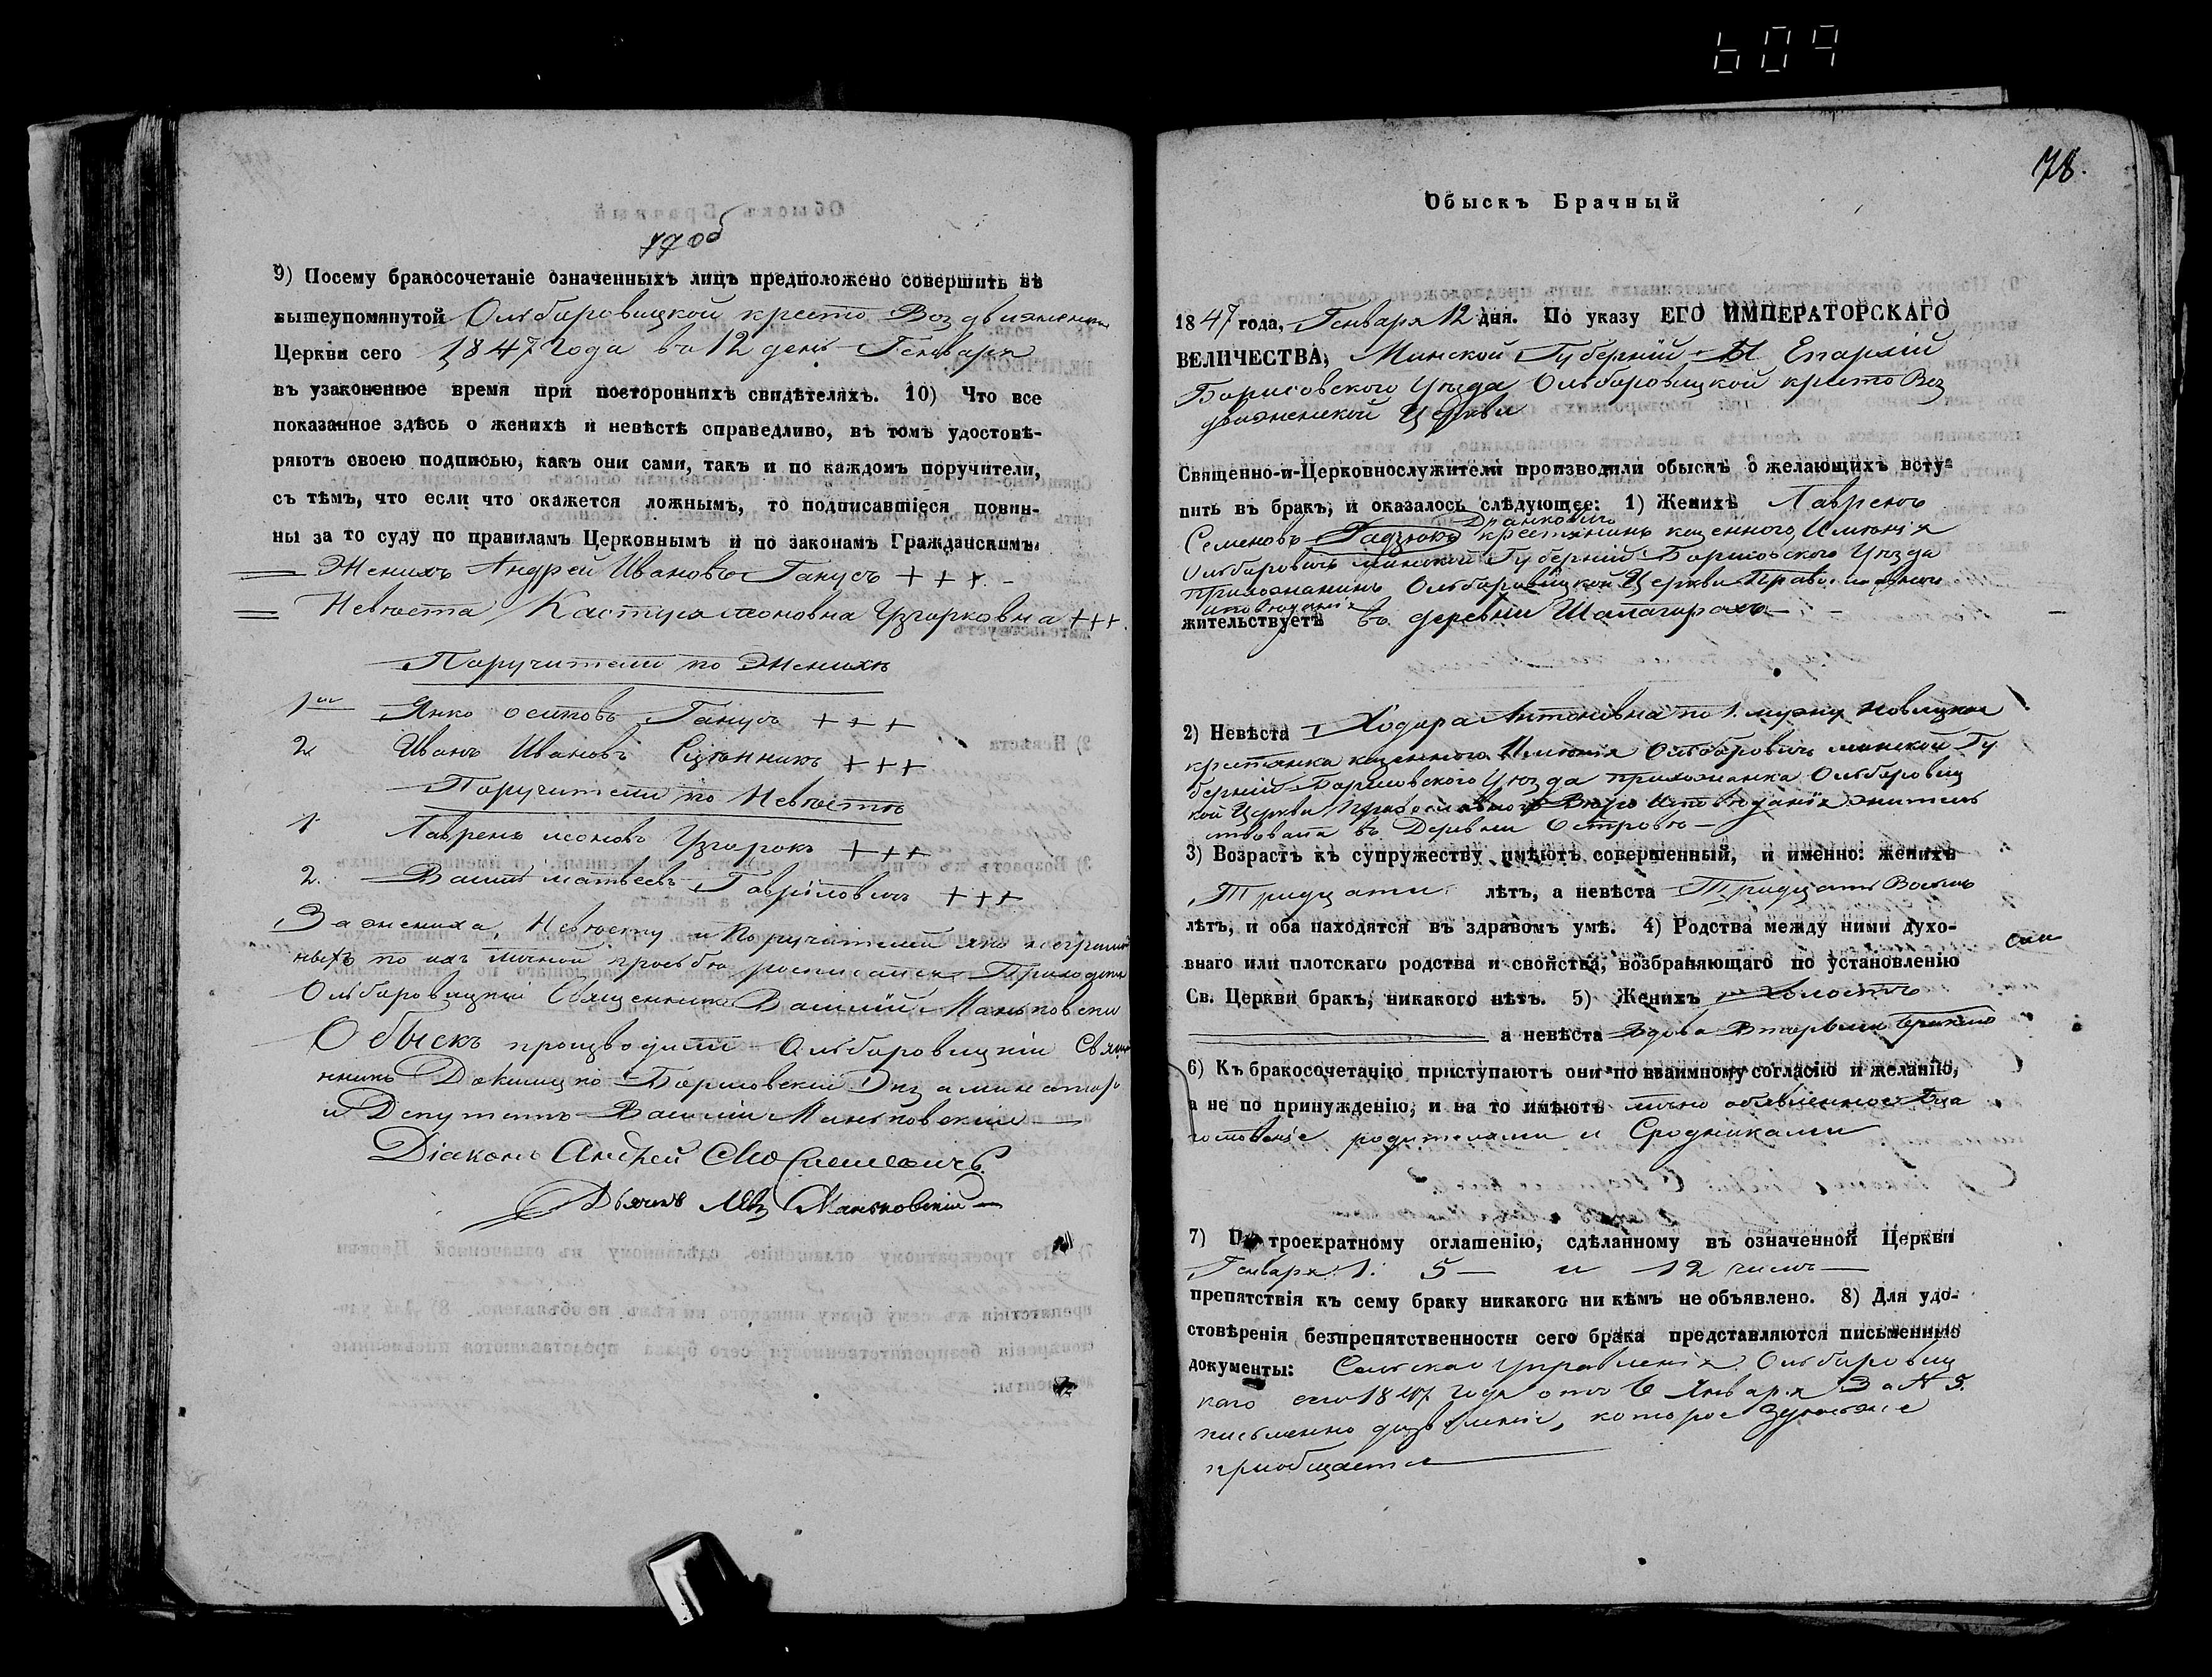 609
77 об
9) Посему бракосочетаніе означенныхъ лицъ предположено совершить въ
вышеупомянутой Ольбаровицкой кресто Воздвиженской
Церкви сего 1847 года въ 12 день Генваря
въ узаконенное время при постороннихъ свидѣтеляхъ. 10) Что все
показанное здѣсь о женихѣ и невѣстѣ справедливо, въ томъ удостовѣ-
ряютъ своею подписью, какъ они сами, такъ и по каждомъ поручители,
съ тѣмъ, что если что окажется ложнымъ, то подписавшіеся повин-
ны за то суду по правиламъ Церковнымъ и по законамъ Гражданскимъ.
Женихъ Андрей Ивановъ Ганусъ + + +
Невѣста Леоновна Узгорковна +++
Поручители по Женихѣ
1 Янко Осиповъ Ганусъ + + +
2 Иванъ Ивановъ +++
Поручители по Невѣстѣ
1 Лавренъ Леоновъ Узгорокъ +++
2. Василь Матвеевъ Гавриловичъ +++
За жениха, Невѣсту и Поручителей яко неграмот
ныхъ по ихъ личной просьбѣ росписался Приходскій
Ольбаровицкій Священникъ Василій Маньковскій
Обыскъ производили Ольбаровицкій Свяще
нникъ Докшицко-Борисовскій Экзаминаторъ
и Депутатъ Василій Маньковскій
Діаконъ Андрей
Дьячекъ Маньковскій
78.
Обыскъ Брачный
1847 года, Генваря 12 дня. По указу ЕГО ИМПЕРАТОРСКАГО
ВЕЛИЧЕСТВА, Минской Губерніи и Епархіи
Борисовского Уѣзда Ольбаровицкой кресто Воз
движенской Церкви
Священно-и-Церковнослужители производили обыскъ о желающихъ всту-
пить въ бракъ, и оказалось слѣдующее: 1) Женихъ Лавренъ
Дранковичъ
Семеновъ крестьянинъ казенного Имѣнія
Ольбаровичъ Минской Губерніи Борисовского Уѣзда
Прихожанинъ Ольбаровицкой Церкви Православного
исповѣданія
жительствуетъ въ деревни Шалагирахъ
2) Невѣста Ходора Антоновна по 1. мужу Новицкая
крестьянка казенного Имѣнія Ольбаровичъ Минской Гу
берніи Борисовского Уѣзда прихожанка Ольбаровиц
кой Церкви Православного Вѣро Исповѣданія жительс
твовала въ Деревни Островѣ
3) Возрастъ къ супружеству имѣютъ совершенный, и именно: женихъ
Тридцати лѣтъ, а невѣста Тридцати Восьми
лѣтъ, и оба находятся въ здравомъ умѣ. 4) Родства между ними духо-
внаго или плотскаго родства и свойства, возбраняющаго по установленію
Св. Церкви бракъ, никакого нѣтъ. 5) Женихъ холостъ
а невѣста Вдова Вторымъ бракомъ
6) Къ бракосочетанію приступаютъ они по взаимному согласію и желанію,
а не по принужденію, и на то имѣютъ лично объявленное Бла
гословеніе родителями и Сродниками
7) По троекратному оглашенію, сдѣланному въ означенной Церкви
Генваря 1. 5 и 12 числъ
препятствія къ сему браку никакого ни кѣмъ не объявлено. 8) Для удо-
стовѣренія безпрепятственности сего брака представляются письменные
документы: Сельскаго Управленія Ольбаровиц
каго сего 1847 года отъ 6 Января За N 5.
письменно дозволеніе, которое
приобщается